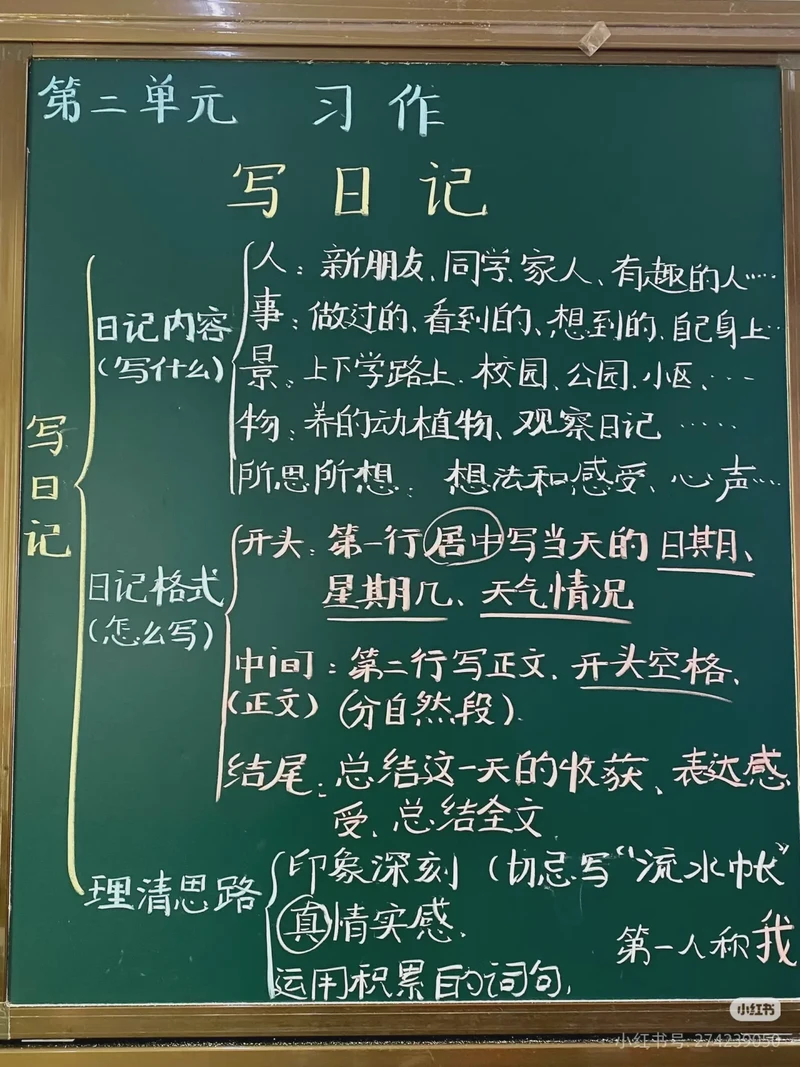 第二单元 习作
写日记
写日记
日记内容
(写什么)
人：新朋友、同学、家人、有趣的人……
事：做过的、看到的、想到的、自己身上…
景：上下学路上、校园、公园、小区、…
物：养的动植物、观察日记……
所思所想：想法和感受、心声…
日记格式
(怎么写)
开头：第一行居中写当天的日期、
星期几、天气情况
中间：第二行写正文、开头空格、
(正文)(分自然段)
结尾：总结这一天的收获、表达感
受、总结全文
理清思路
印象深刻(切忌写“流水帐”
真情实感、
第一人称我
运用积累的词句，
小红书
小红书号 274239050